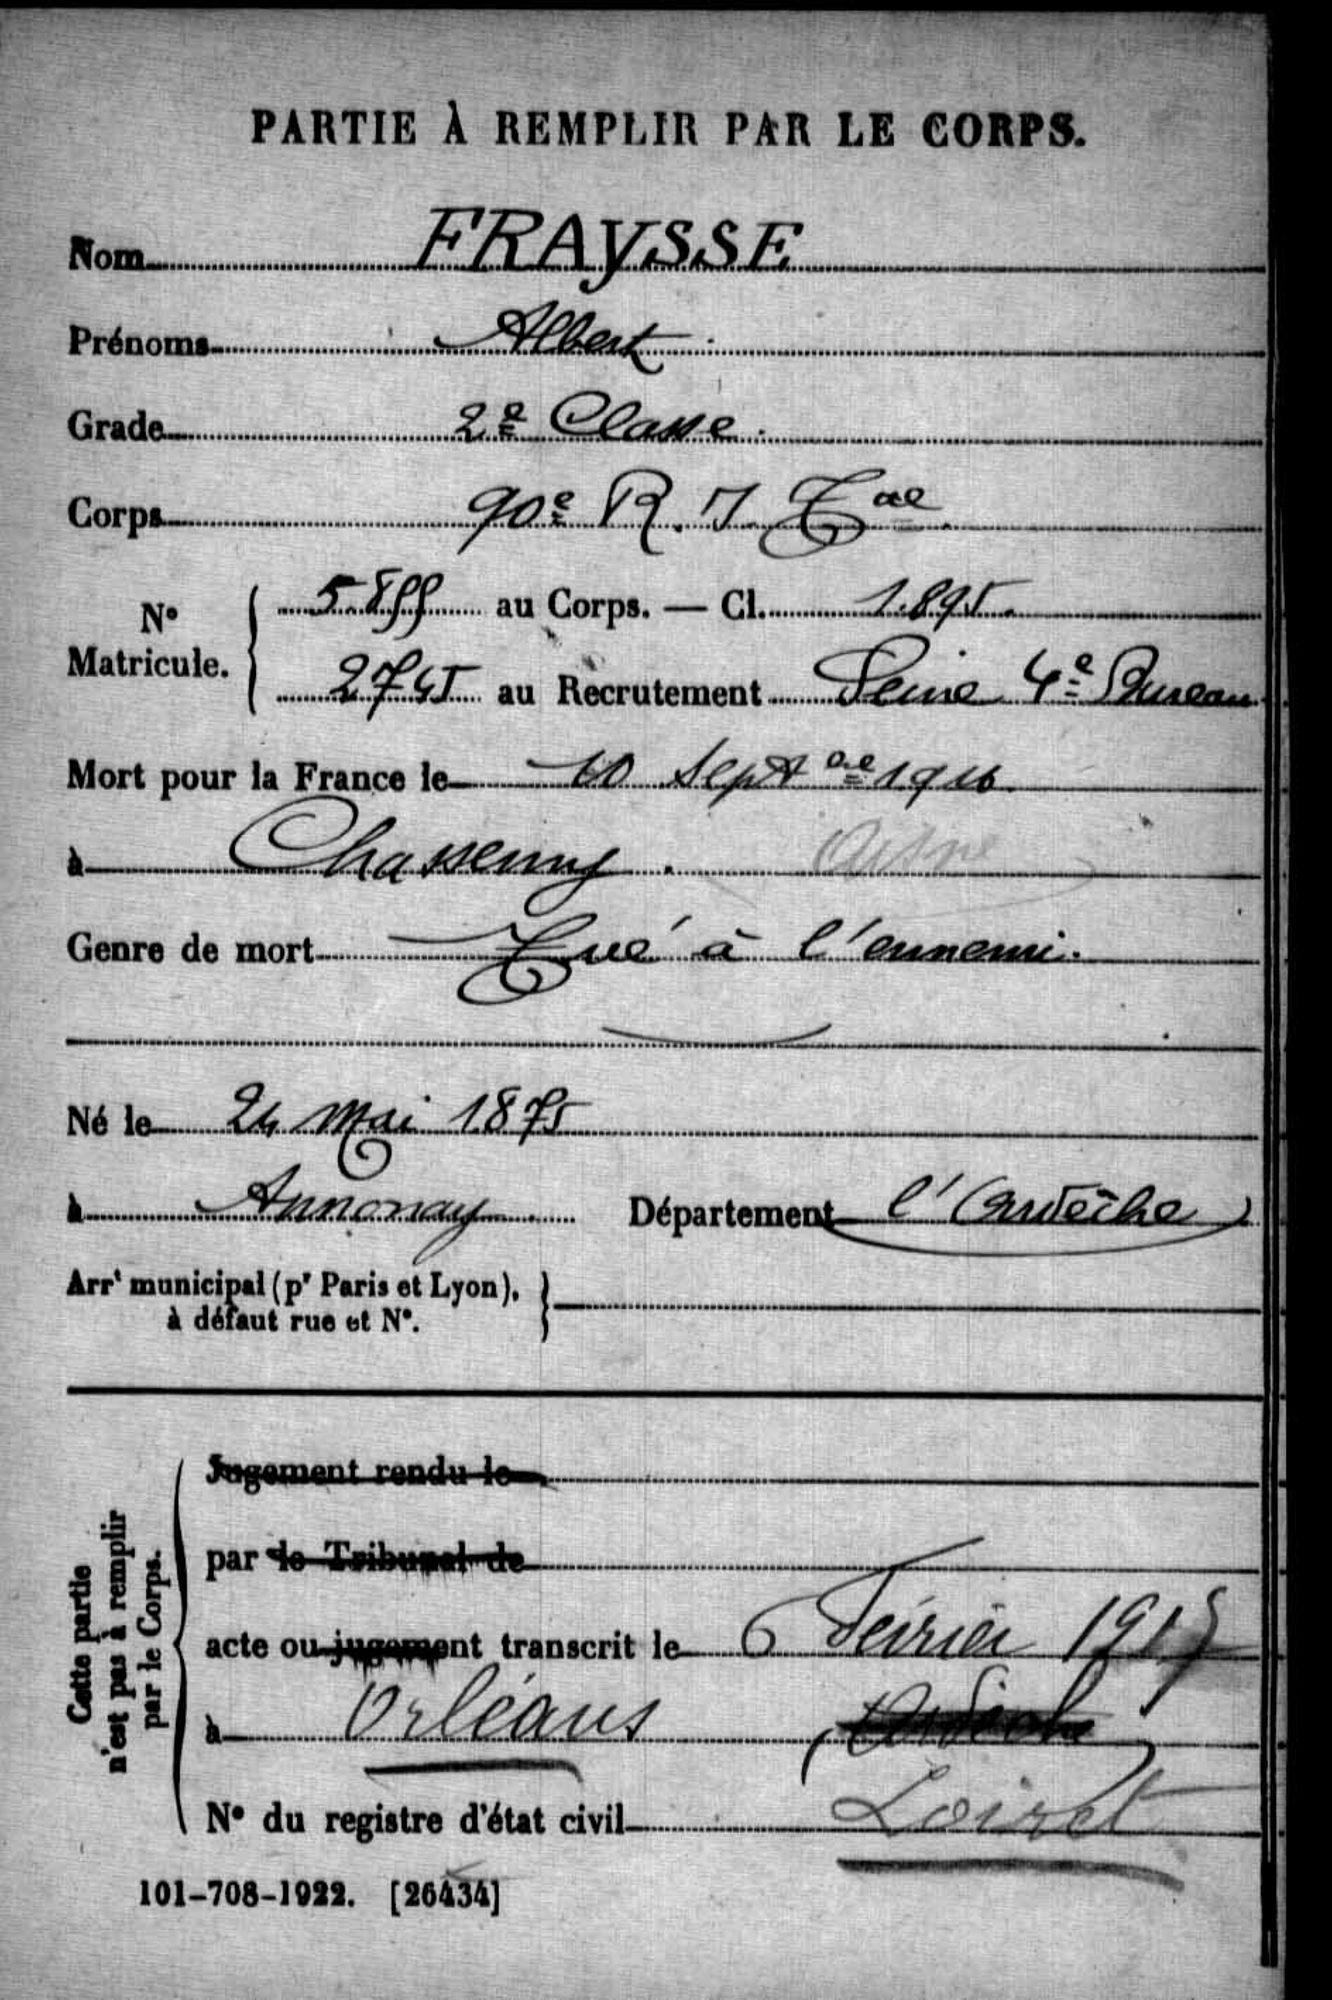 PARTIE À REMPLIR PAR LE CORPS.
Nom FRAYSSE
Prénoms Albert
Grade 2e Classe.
Corps 90e R. I. Tal
N° Matricule. 5.899 au Corps. — Cl. 1.895.
2745 au Recrutement Seine 4e Bureau
Mort pour la France le 10 Septbre 1916
à Chassemy. Aisne
Genre de mort Tué à l'ennemi.
Né le 24 Mai 1875
à Annonay Département l'Ardèche
Arrt municipal (pr Paris et Lyon),
à défaut rue et N°.
Cette partie
n'est pas à remplir
par le Corps.
Jugement rendu le
par le Tribunal de
acte ou jugement transcrit le 6 Février 1917
à Orléans Ardèche
N° du registre d'état civil Loiret
101-708-1922. [26434]